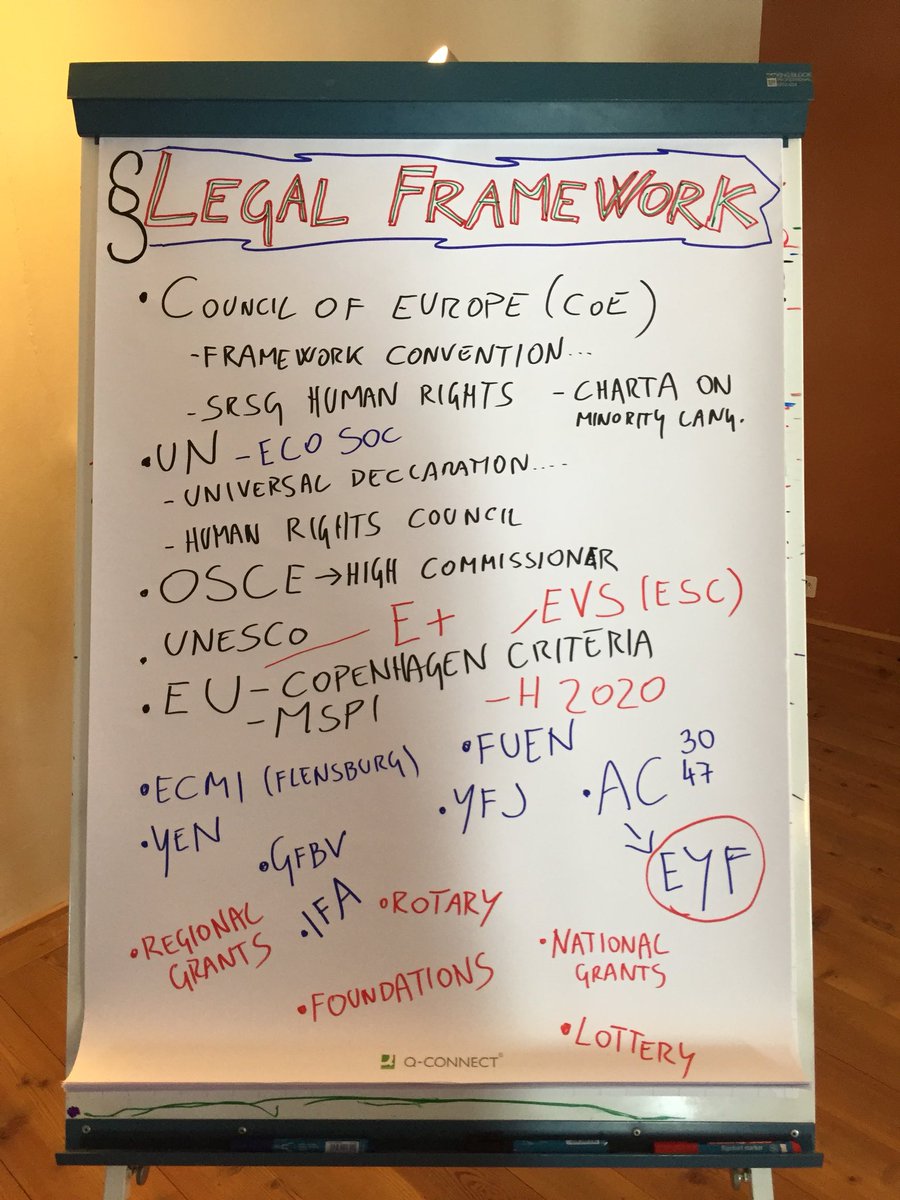 § LEGAL FRAMEWORK
• COUNCIL OF EUROPE (COE)
- FRAMEWORK CONVENTION...
- SRSG HUMAN RIGHTS - CHARTA ON
MINORITY LANG.
• UN - ECO SOC
- UNIVERSAL DECLARATION....
- HUMAN RIGHTS COUNCIL
• OSCE → HIGH COMMISSIONER
• UNESCO E+ EVS (ESC)
• EU - COPENHAGEN CRITERIA
- MSPI - H 2020
• ECMI (FLENSBURG) • FUEN
• AC 30
47
• YEN • YFJ
• GFBV EYF
• IFA • ROTARY
• REGIONAL
GRANTS
• NATIONAL
GRANTS
• FOUNDATIONS
• LOTTERY
Q-CONNECT®